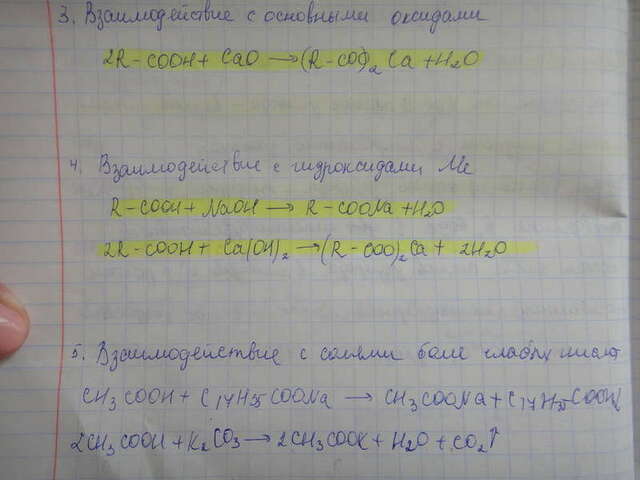 3. Взаимодействие с основными оксидами
2R-COOH + CaO → (R-COO)2 Ca + H2O
4. Взаимодействие с гидроксидами Me
R-COOH + NaOH → R-COONa + H2O
2R-COOH + Ca(OH)2 → (R-COO)2Ca + 2H2O
5. Взаимодействие с солями боле слабых кислот
CH3COOH + C17H35COONa → CH3COONa + C17H35COOH
2CH3COOH + K2CO3 → 2CH3COOK + H2O + CO2↑